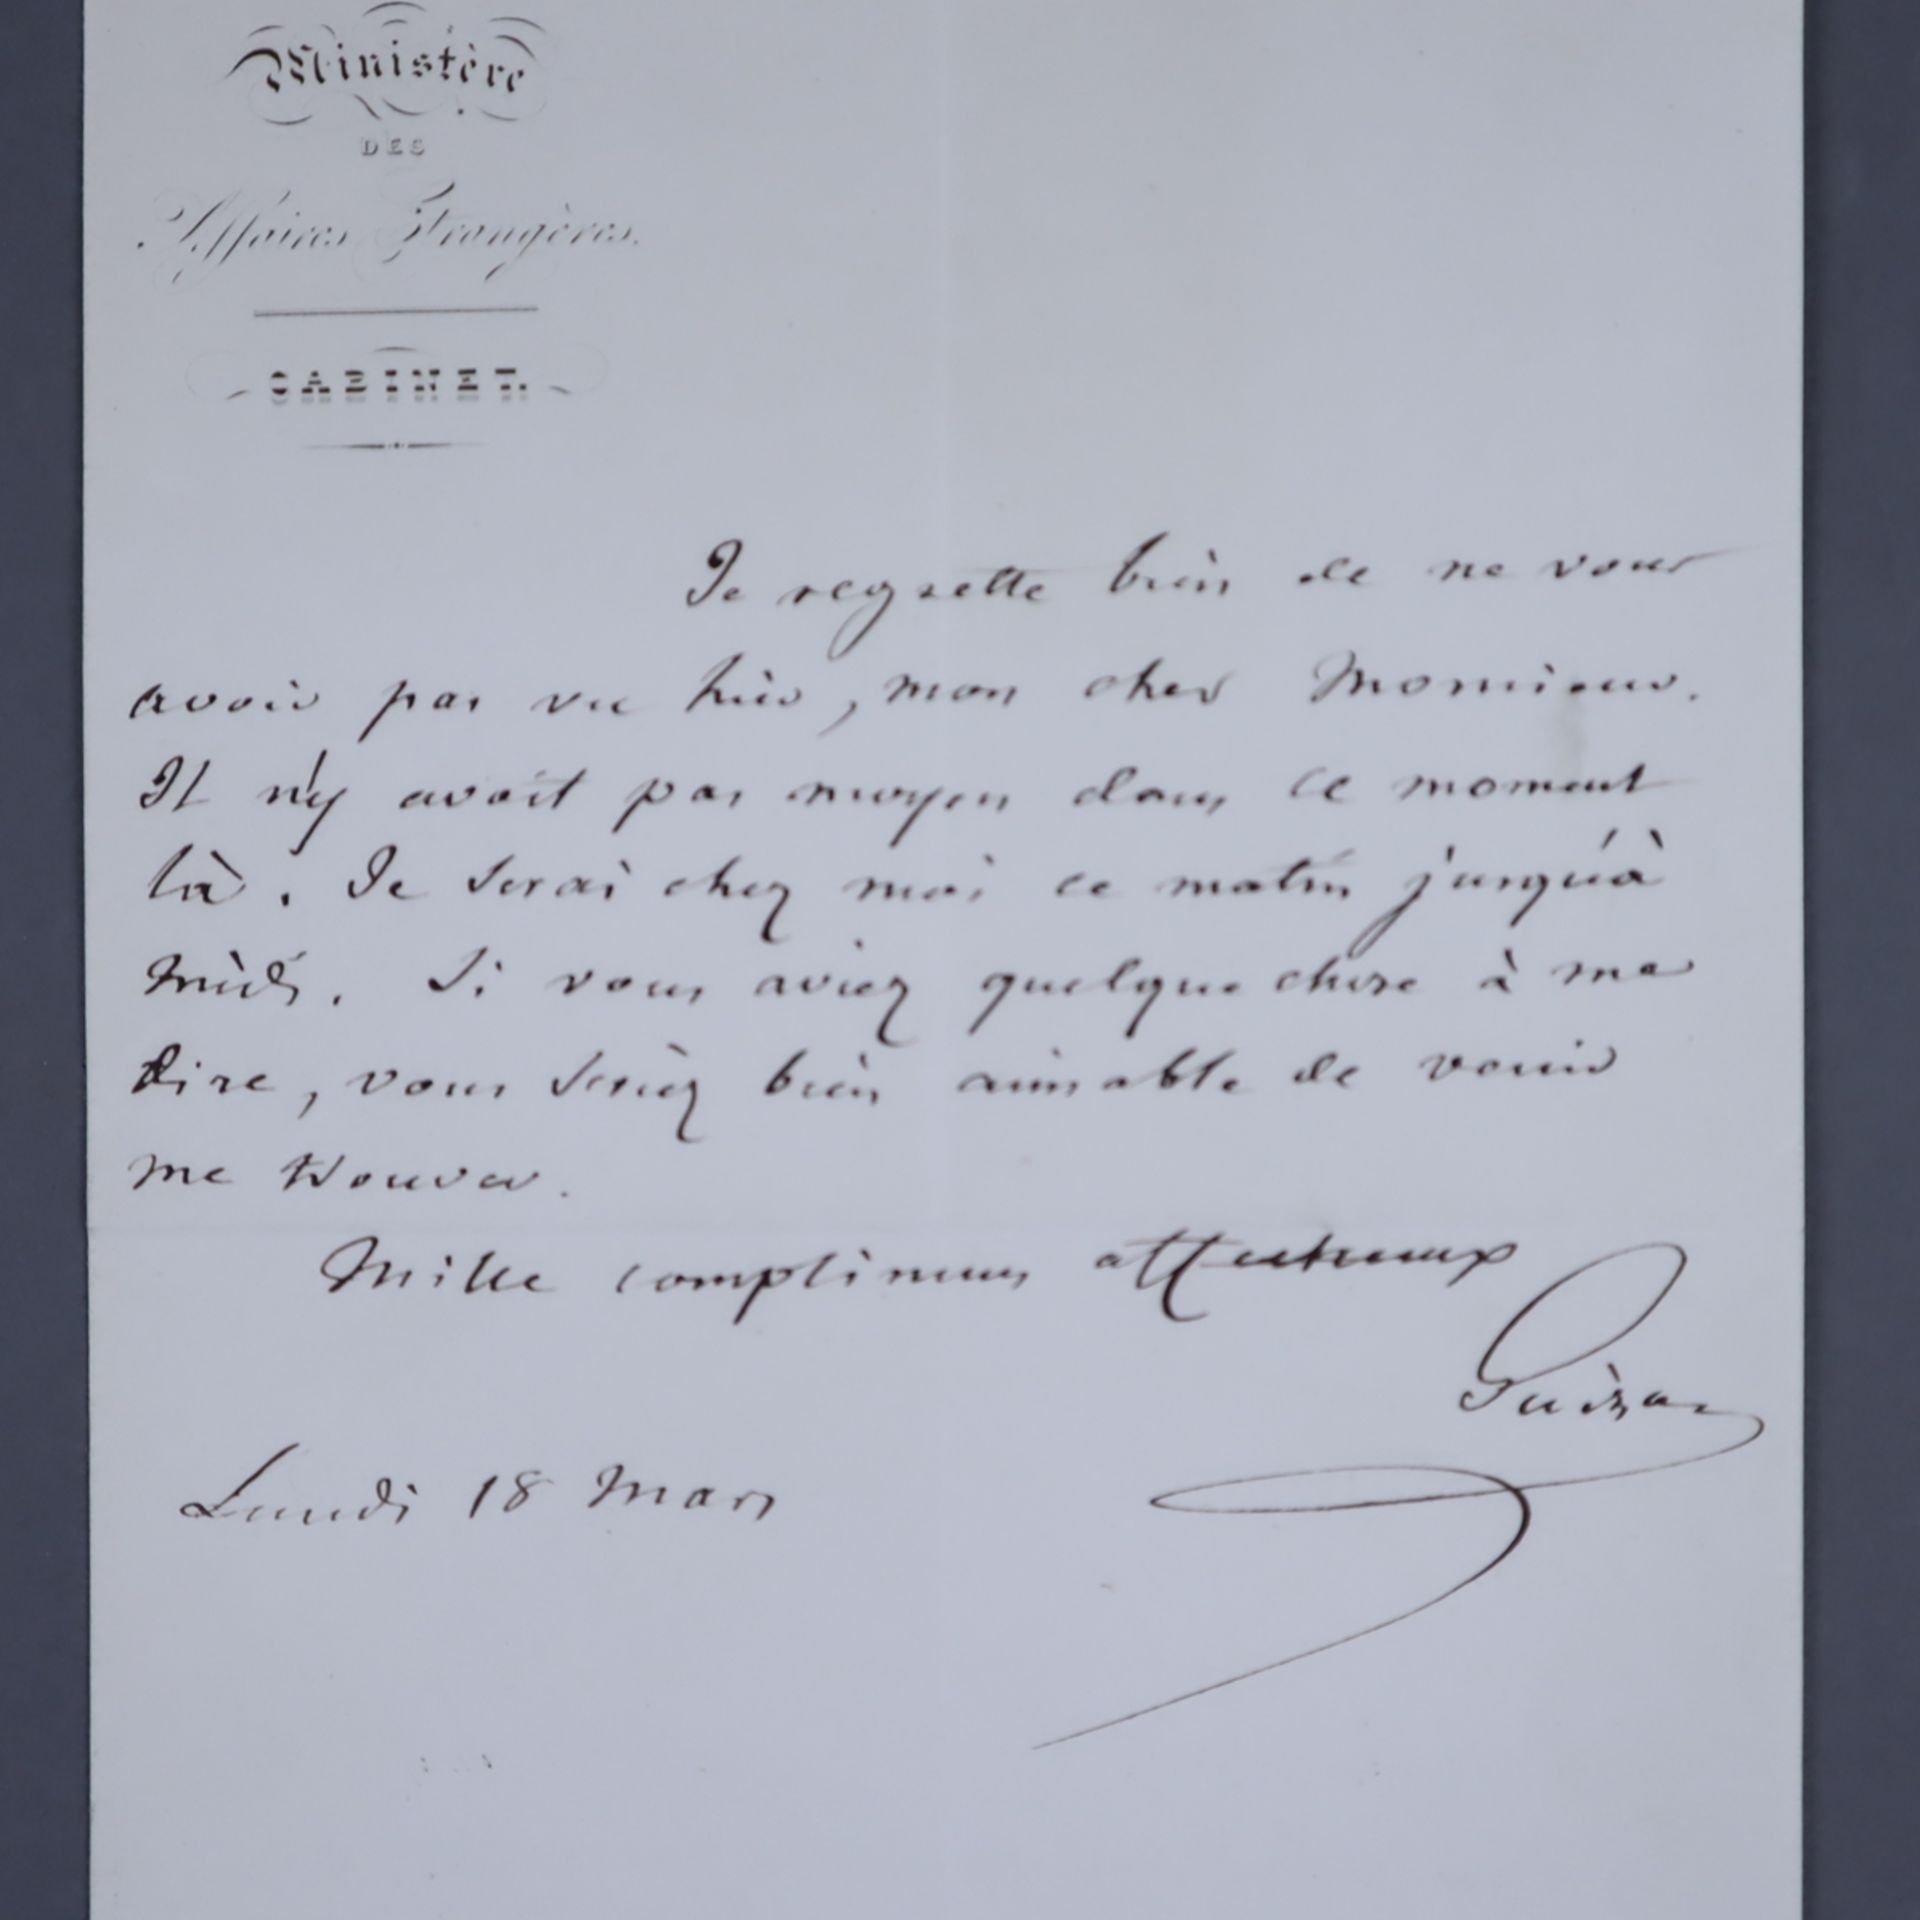 Ministère
DES
Affaires Étrangères.
CABINET.
Je regrette bien de ne vous
avoir pas vu hier, mon cher Monsieur.
Il n'y avait pas moyen dans ce moment
là. Je serai chez moi ce matin jusqu'à
midi. Si vous aviez quelque chose à me
dire, vous seriez bien aimable de venir
me trouver.
Mille complimens affectueux
Guizot
Lundi 18 Mars